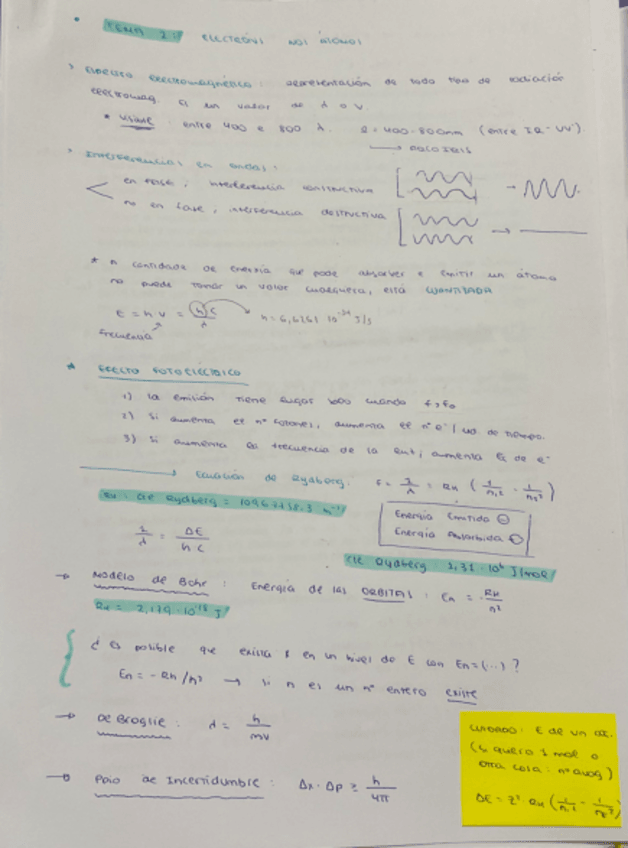 TEMA 2: ELECTRÓNS NOS ÁTOMOS
ESPECTRO ELECTROMAGNÉTICO: representación de todo tipo de radiación
electromag. a un valor de λ o ν.
* VISIBLE: entre 400 e 800 λ. 400-800nm (entre IR-UV).
Interferencias en ondas:
en fase, interferencia constructiva
no en fase, interferencia destructiva
* A cantidade de energía que pode absorber e emitir un átomo
no puede tomar un valor cualquera, está CUANTIZADA
E = h ν = h c / λ h = 6,6261 10⁻³⁴ J/s
frecuencia
* EFECTO FOTOELÉCTRICO
1) La emisión tiene lugar cuando f > f₀
2) Si aumenta el nº fotones, aumenta el nº e⁻ / ud. de tiempo.
3) Si aumenta la frecuencia de la , aumenta Ec de e⁻
Ecuación de Rydberg: = 1/λ = RH (1/n₁² - 1/n₂²)
de Rydberg = 1096 .3 m⁻¹
Energía Emitida ⊖
Energía Absorbida
1/λ = ΔE / h c
cte Rydberg 1,31 · 10⁶ J/mol
→ Modelo de Bohr: Energía de las ORBITAS: En = -RH/n²
RH = 2,179 · 10⁻¹⁸ J
¿ es posible que exista en un nivel de E con En = (...) ?
En = -RH/n² → si n es un nº entero existe
→ De Broglie: λ = h / mv
→ Ppio de Incertidumbre: Δx · Δp ≥ h / 4π
CUIDADO: E de un at.
(si quero 1 mol o
otra cosa: nº avog)
ΔE = Z² · RH (1/n₁² - 1/n₂²)